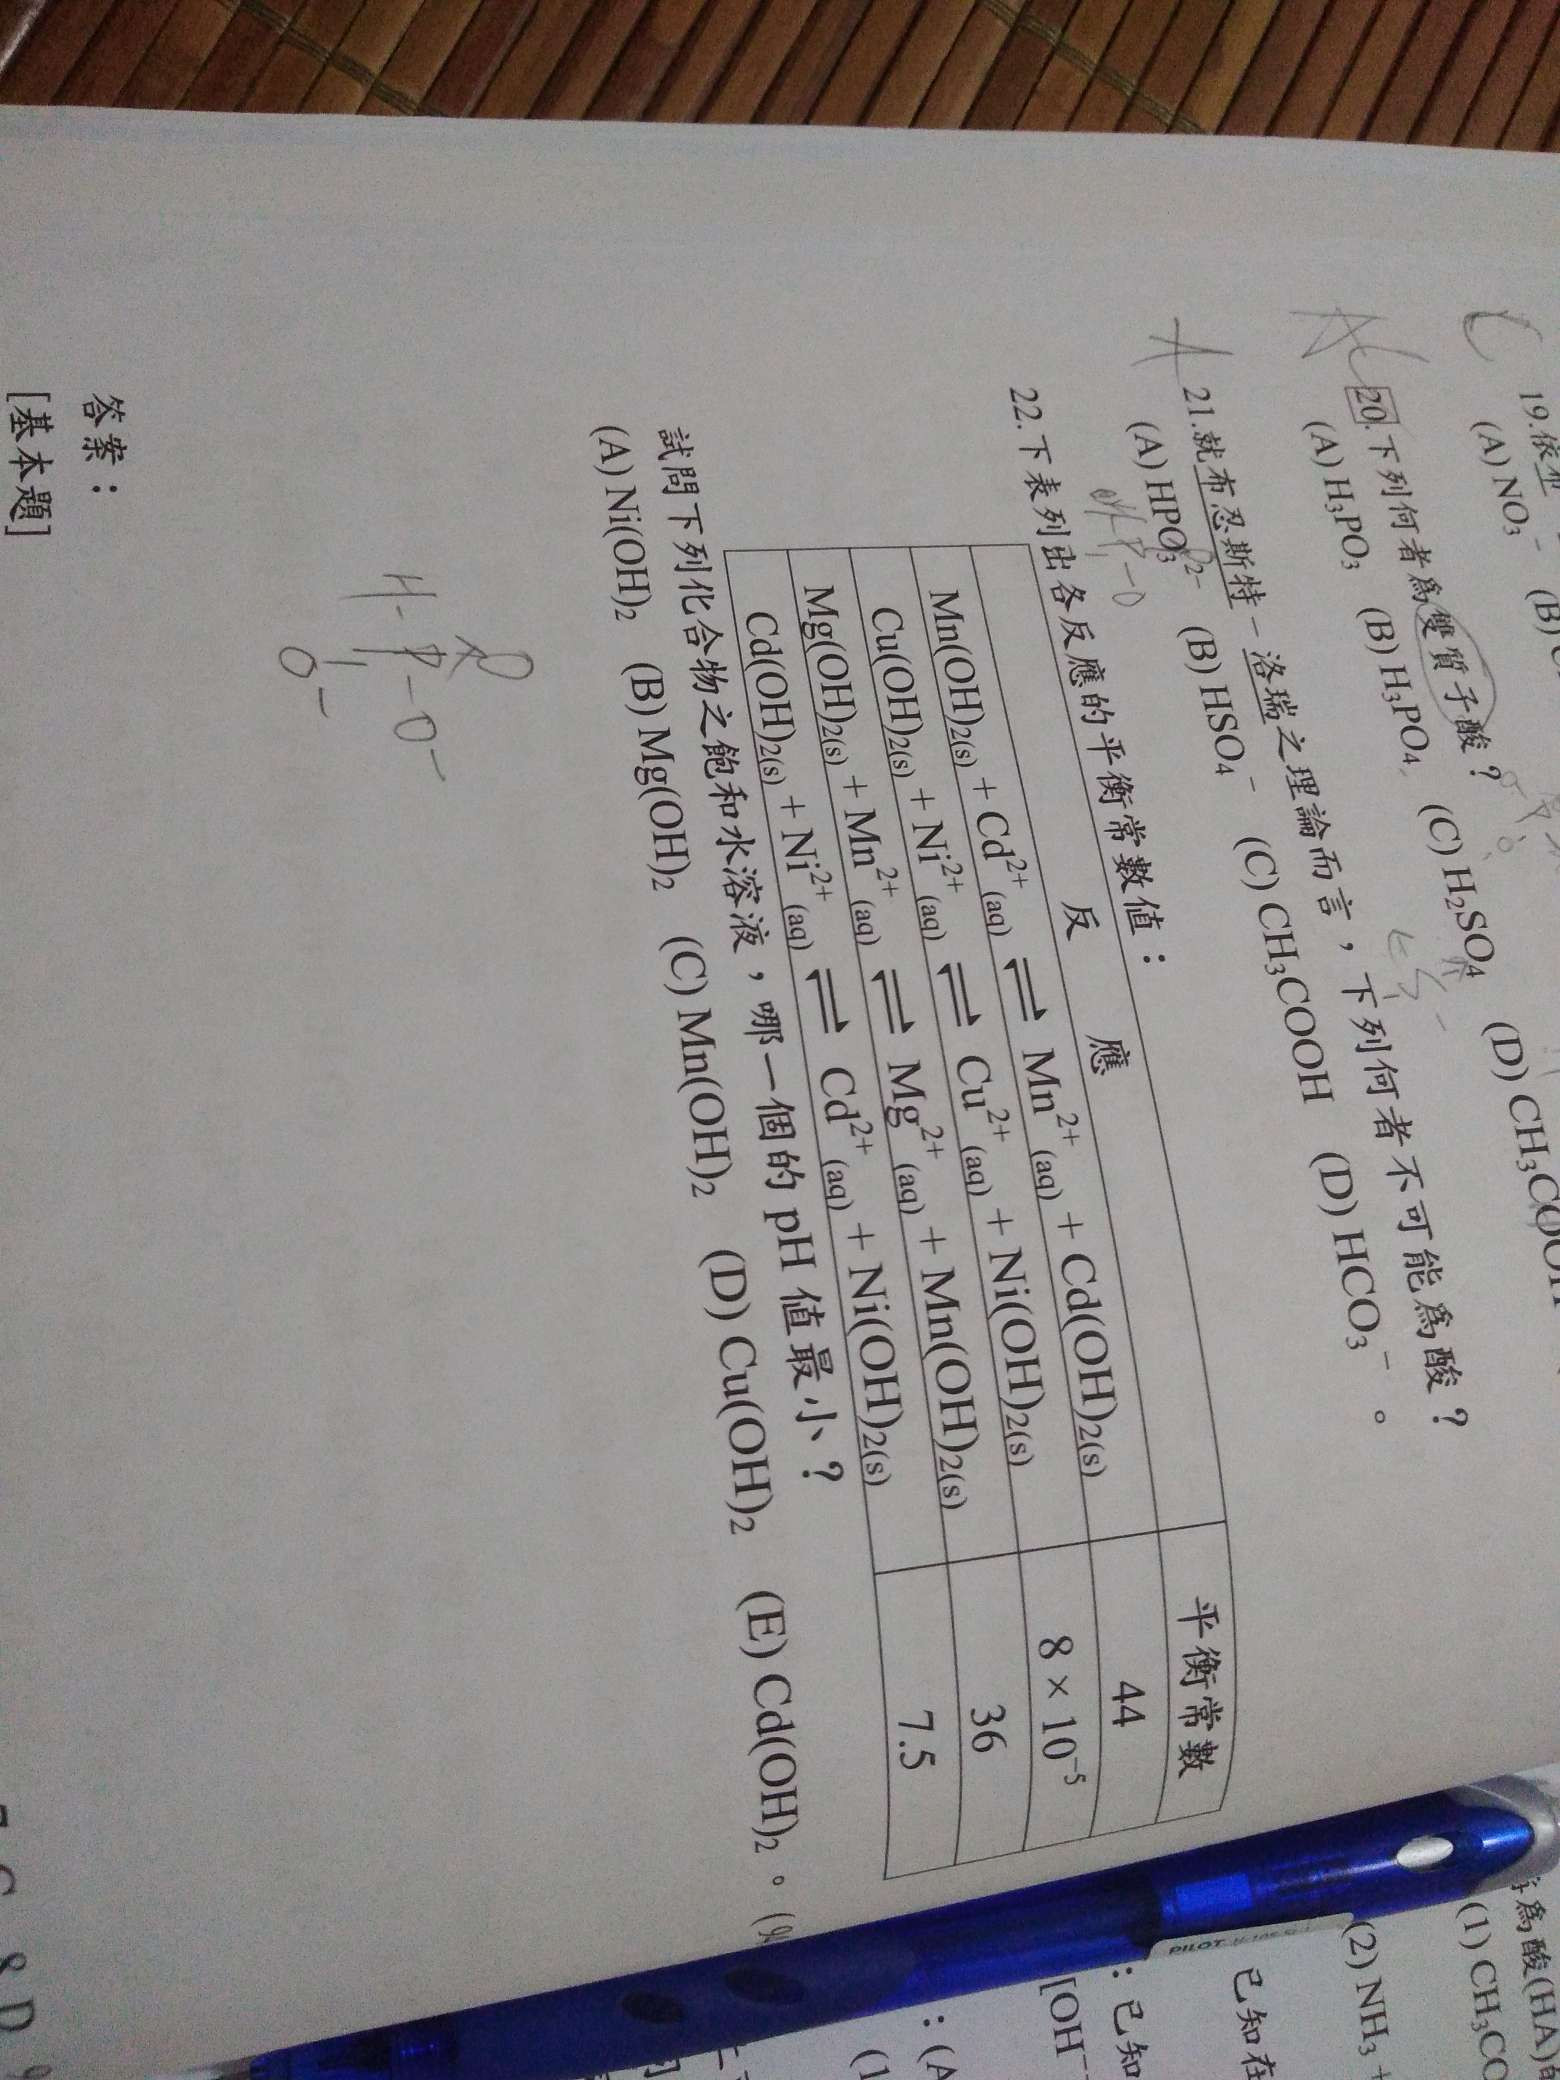 19.依
(A) NO₃⁻ (B) (D) CH₃COOH
20.下列何者為雙質子酸？
(A) H₃PO₃ (B) H₃PO₄ (C) H₂SO₄
21.就布忍斯特－洛瑞之理論而言，下列何者不可能為酸？
(A) HPO₃²⁻ (B) HSO₄⁻ (C) CH₃COOH (D) HCO₃⁻。
22.下表列出各反應的平衡常數值：
反應 平衡常數
Mn(OH)₂(s)＋Cd²⁺(aq) ⇌ Mn²⁺(aq)＋Cd(OH)₂(s) 44
Cu(OH)₂(s)＋Ni²⁺(aq) ⇌ Cu²⁺(aq)＋Ni(OH)₂(s) 8 × 10⁻⁵
Mg(OH)₂(s)＋Mn²⁺(aq) ⇌ Mg²⁺(aq)＋Mn(OH)₂(s) 36
Cd(OH)₂(s)＋Ni²⁺(aq) ⇌ Cd²⁺(aq)＋Ni(OH)₂(s) 7.5
試問下列化合物之飽和水溶液，哪一個的 pH 值最小？
(A) Ni(OH)₂ (B) Mg(OH)₂ (C) Mn(OH)₂ (D) Cu(OH)₂ (E) Cd(OH)₂。
答案：
[基本題]
為酸(HA)
(1) CH₃CO
(2) NH₃＋
已知在
：已知
[OH⁻
：(A
PILOT